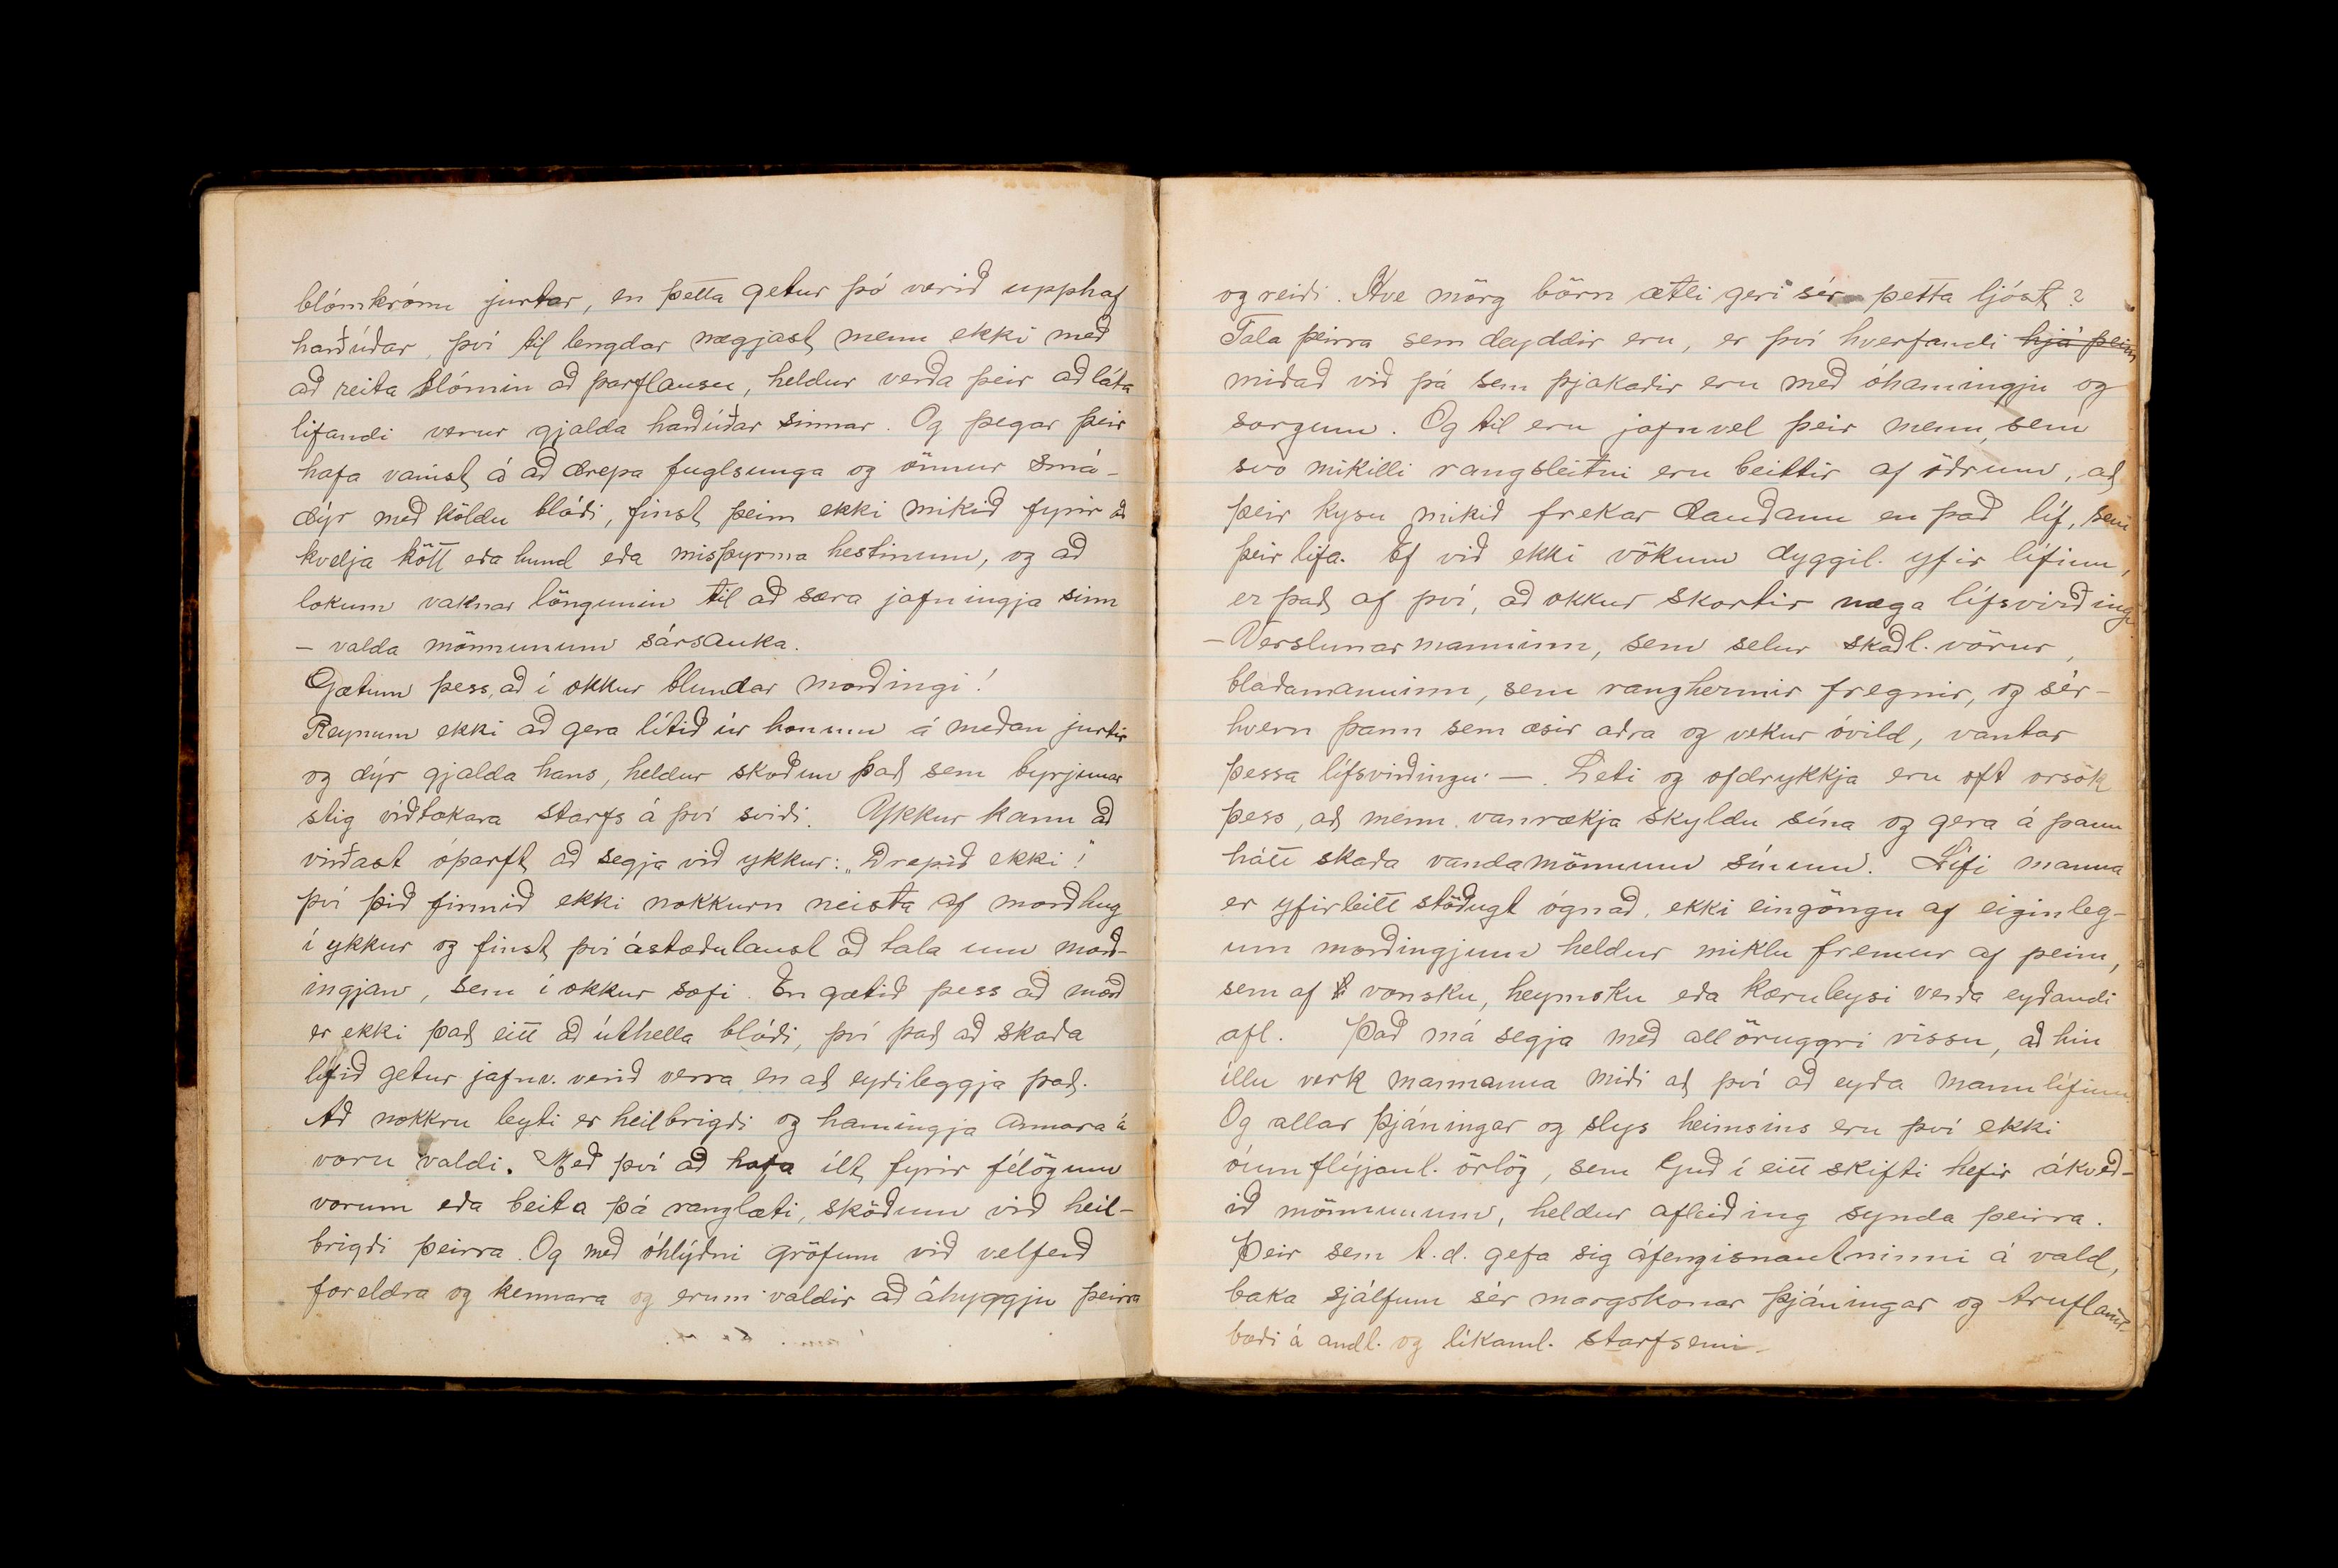 blómkrónu jurtar, en þetta getur þó verið upphaf
harðúðar, því til lengdar nægjast menn ekki með
að reita blómin að þarflausu, heldur verða þeir að láta
lifandi verur gjalda harðúðar sinnar. Og þegar þeir
hafa vanist á að drepa fuglsunga og önnur smá-
dýr með köldu blóði, finst þeim ekki mikið fyrir að
kvelja kött eða hund eða misþyrma hestinum, og að
lokum vaknar löngunin til að særa jafningja sinn
- valda mönnunum sársauka.
Gætum þess, að í okkur blundar morðingi!
Reynum ekki að gera lítið úr honum á meðan jurtir
og dýr gjalda hans, heldur skoðum það sem byrjunar
stig víðtækara starfs á því sviði. Ykkur kann að
virðast óþarft að segja við ykkur: „Drepið ekki!"
því þið finnið ekki nokkurn neista af morðhug
í ykkur og finst því ástæðulaust að tala um morð-
ingjan, sem í okkur sofi. En gætið þess að morð
er ekki það eitt að úthella blóði, því það að skaða
lífið getur jafnv. verið verra en að eyðileggja það.
Að nokkru leyti er heilbrigði og hamingja annara á
voru valdi. Með því að hafa ilt fyrir félögum
vorum eða beita þá ranglæti, sköðum við heil-
brigði þeirra. Og með óhlýðni gröfum við velferð
foreldra og kennara og erum valdir að áhyggju þeirra
og reiði. Hve mörg börn ætli geri sér þetta ljóst?
Tala þeirra sem deyddir eru, er því hverfandi hjá þeim
miðað við þá sem þjakaðir eru með óhamingju og
sorgum. Og til eru jafnvel þeir menn, sem
svo mikilli rangsleitni eru beittir af öðrum, að
þeir kysu mikið frekar dauðann en það líf, sem
þeir lifa. Ef við ekki vökum dyggil. yfir lífinu,
er það af því, að okkur skortir næga lífsvirðingu.
- Verslunarmanninn, sem selur skaðl. vörur,
blaðamanninn, sem ranghermir fregnir, og sér-
hvern þann sem æsir aðra og vekur óvild, vantar
þessa lífsvirðingu. - . Leti og ofdrykkja eru oft orsök
þess, að menn vanrækja skyldu sína og gera á þann
hátt skaða vandamönnum sínum. Lífi manna
er yfirleitt stöðugt ógnað, ekki eingöngu af eiginleg-
um morðingjum heldur miklu fremur af þeim,
sem af vonsku, heymsku eða kæruleysi verða eyðandi
afl. Það má segja með all öruggri vissu, að hin
illu verk mannanna miði að því að eyða mannlífinu.
Og allar þjáningar og slys heimsins eru því ekki
óumflýjanl. örlög, sem Guð í eitt skifti hefir ákveð-
ið mönnunum, heldur afleiðing synda þeirra.
Þeir sem t.d. gefa sig áfengisnautninni á vald,
baka sjálfum sér margskonar þjáningar og truflanir
bæði á andl. og líkaml. starfsemi.